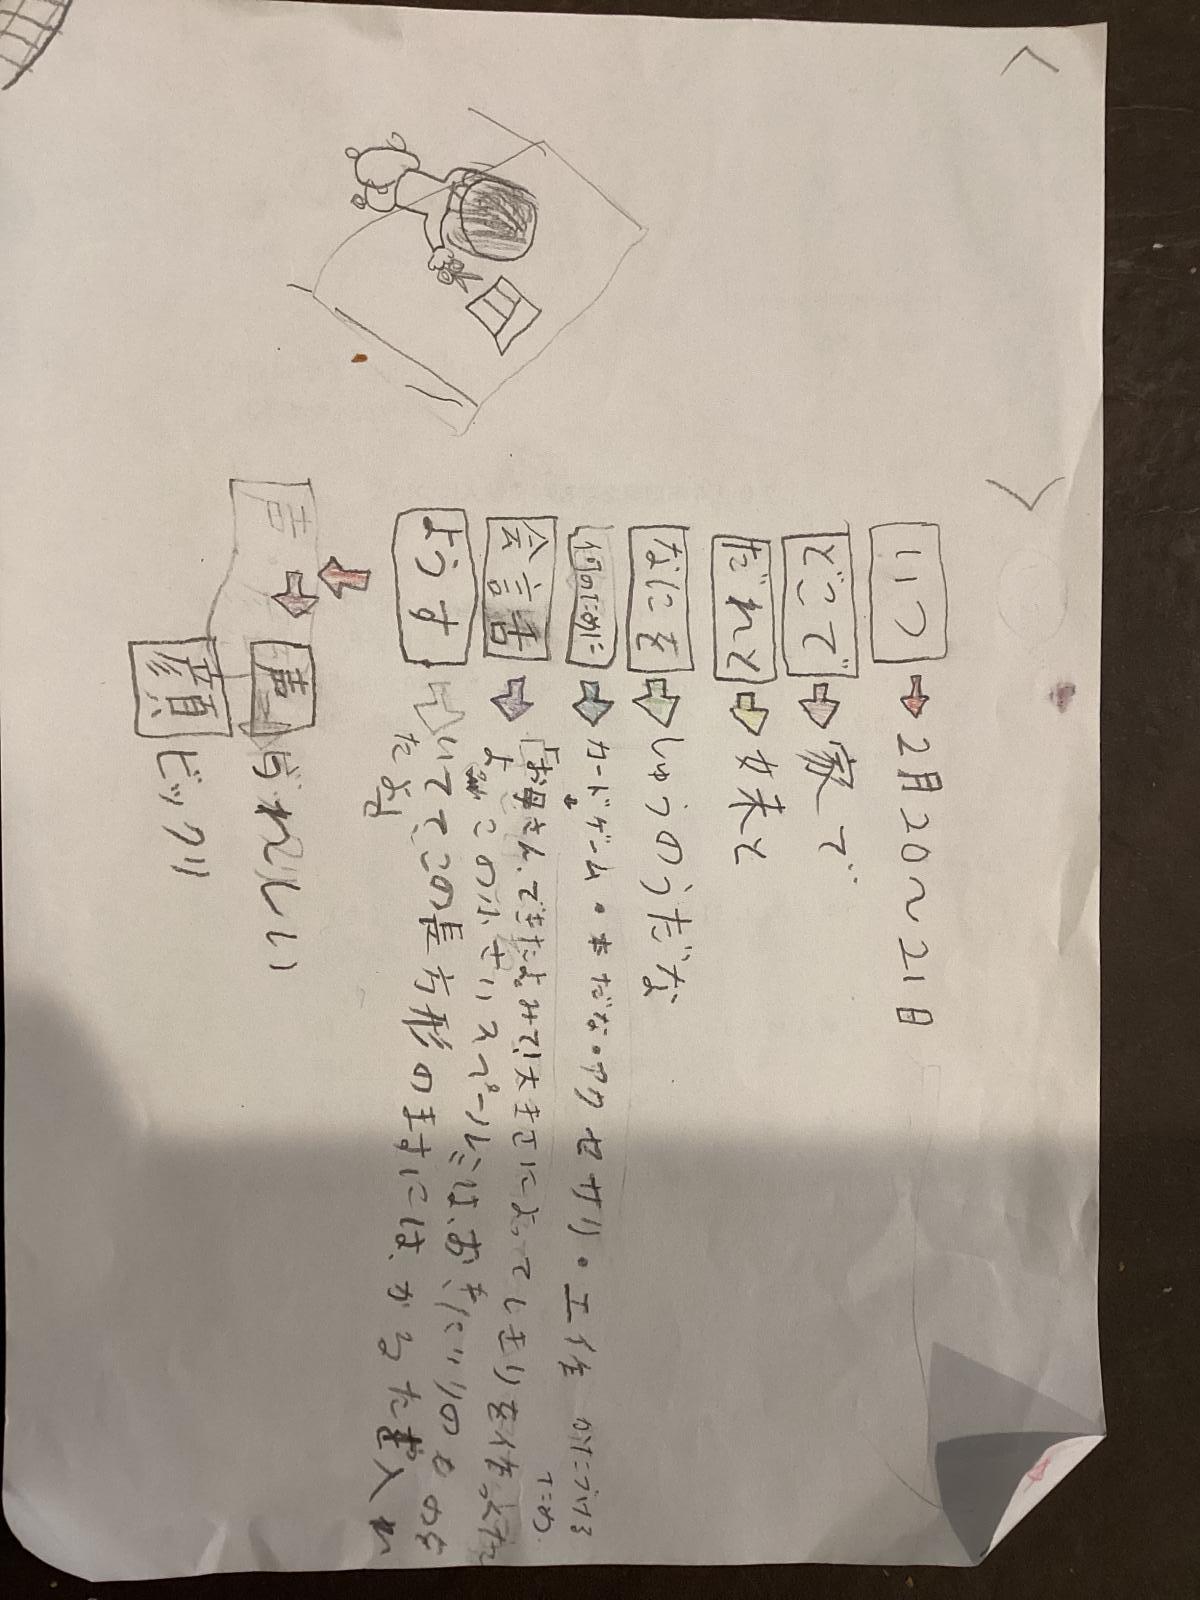 いつ → 2月20〜21日
どこで → 家で
だれと → 妹と
なにを → しゅうのうだな
何のために → カードゲーム・本だな・アクセサリ・工作 かたづける
ため
会話 → 「お母さん、できたよ。みて!大きさによってしきりを作ったん
よ この小さいスペースには、おきにいりのものを
ようす いてて、この長方形のますには、かるた 入れ
たよ」
声
声 → うれしい
顔 ビックリ